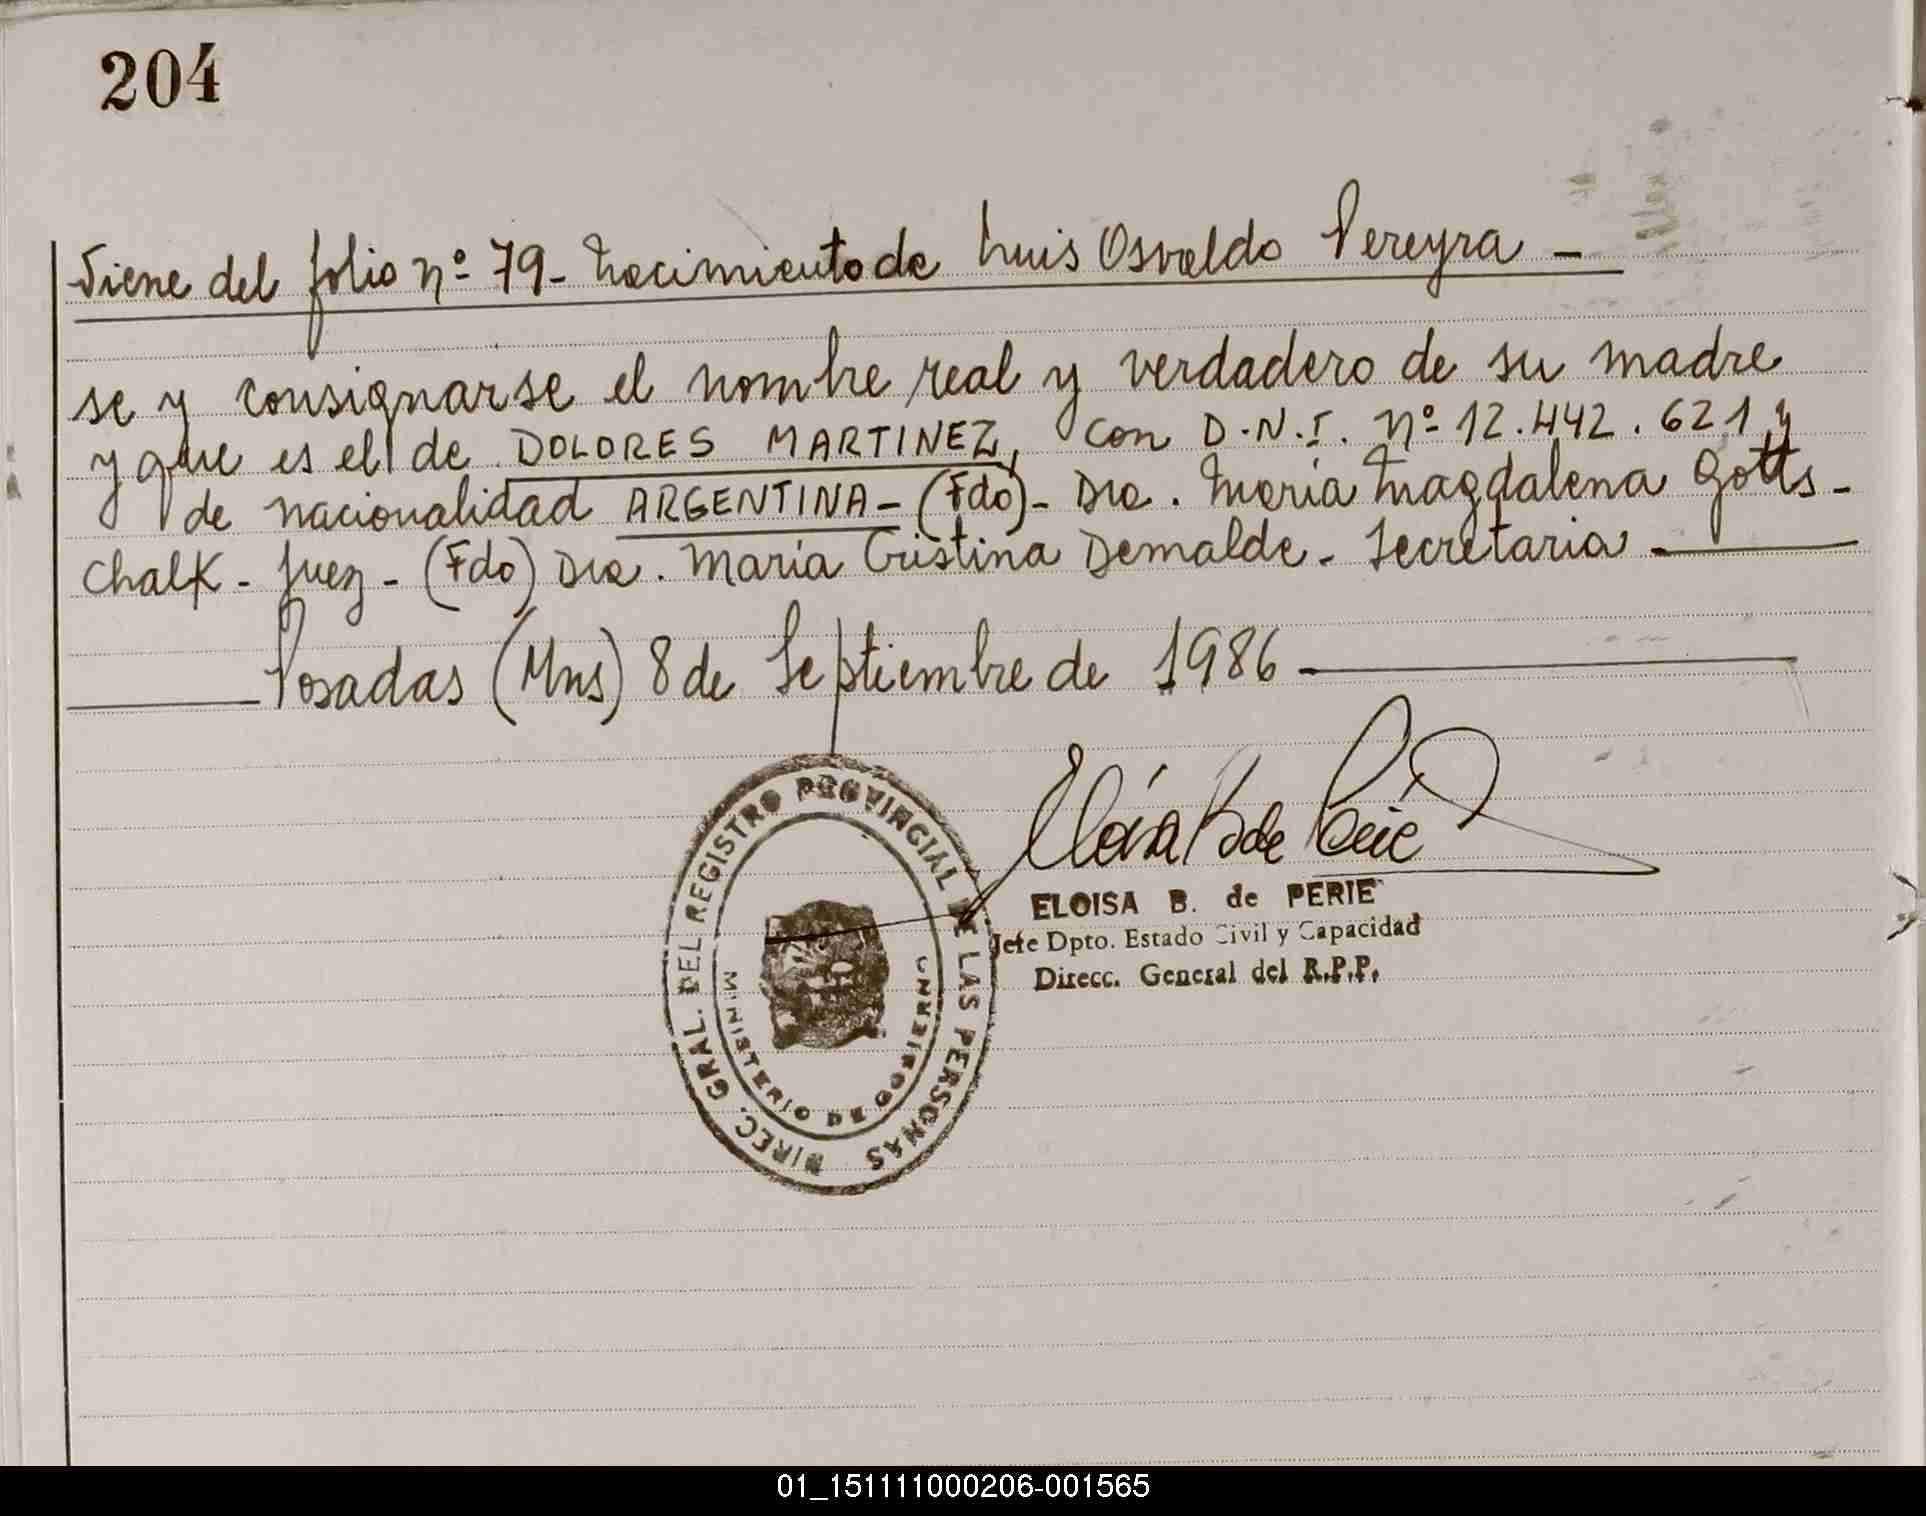 204
Viene del folio nº 79 - Nacimiento de Luis Osvaldo Pereyra -
se y consignarse el nombre real y verdadero de su madre
y que es el de DOLORES MARTINEZ, con D.N.I. nº 12.442.621 y
de nacionalidad ARGENTINA - (Fdo) - Dra. María Magdalena Gotts-
chalk - Juez - (Fdo) Dra. María Cristina Demalde - Secretaria -
Posadas (Mns) 8 de Septiembre de 1986 -
DIREC. GRAL. DEL REGISTRO PROVINCIAL DE LAS PERSONAS
MINISTERIO DE GOBIERNO
Eloisa B de Perié
ELOISA B. de PERIE
Jefe Dpto. Estado Civil y Capacidad
Direcc. General del R.P.P.
01_151111000206-001565